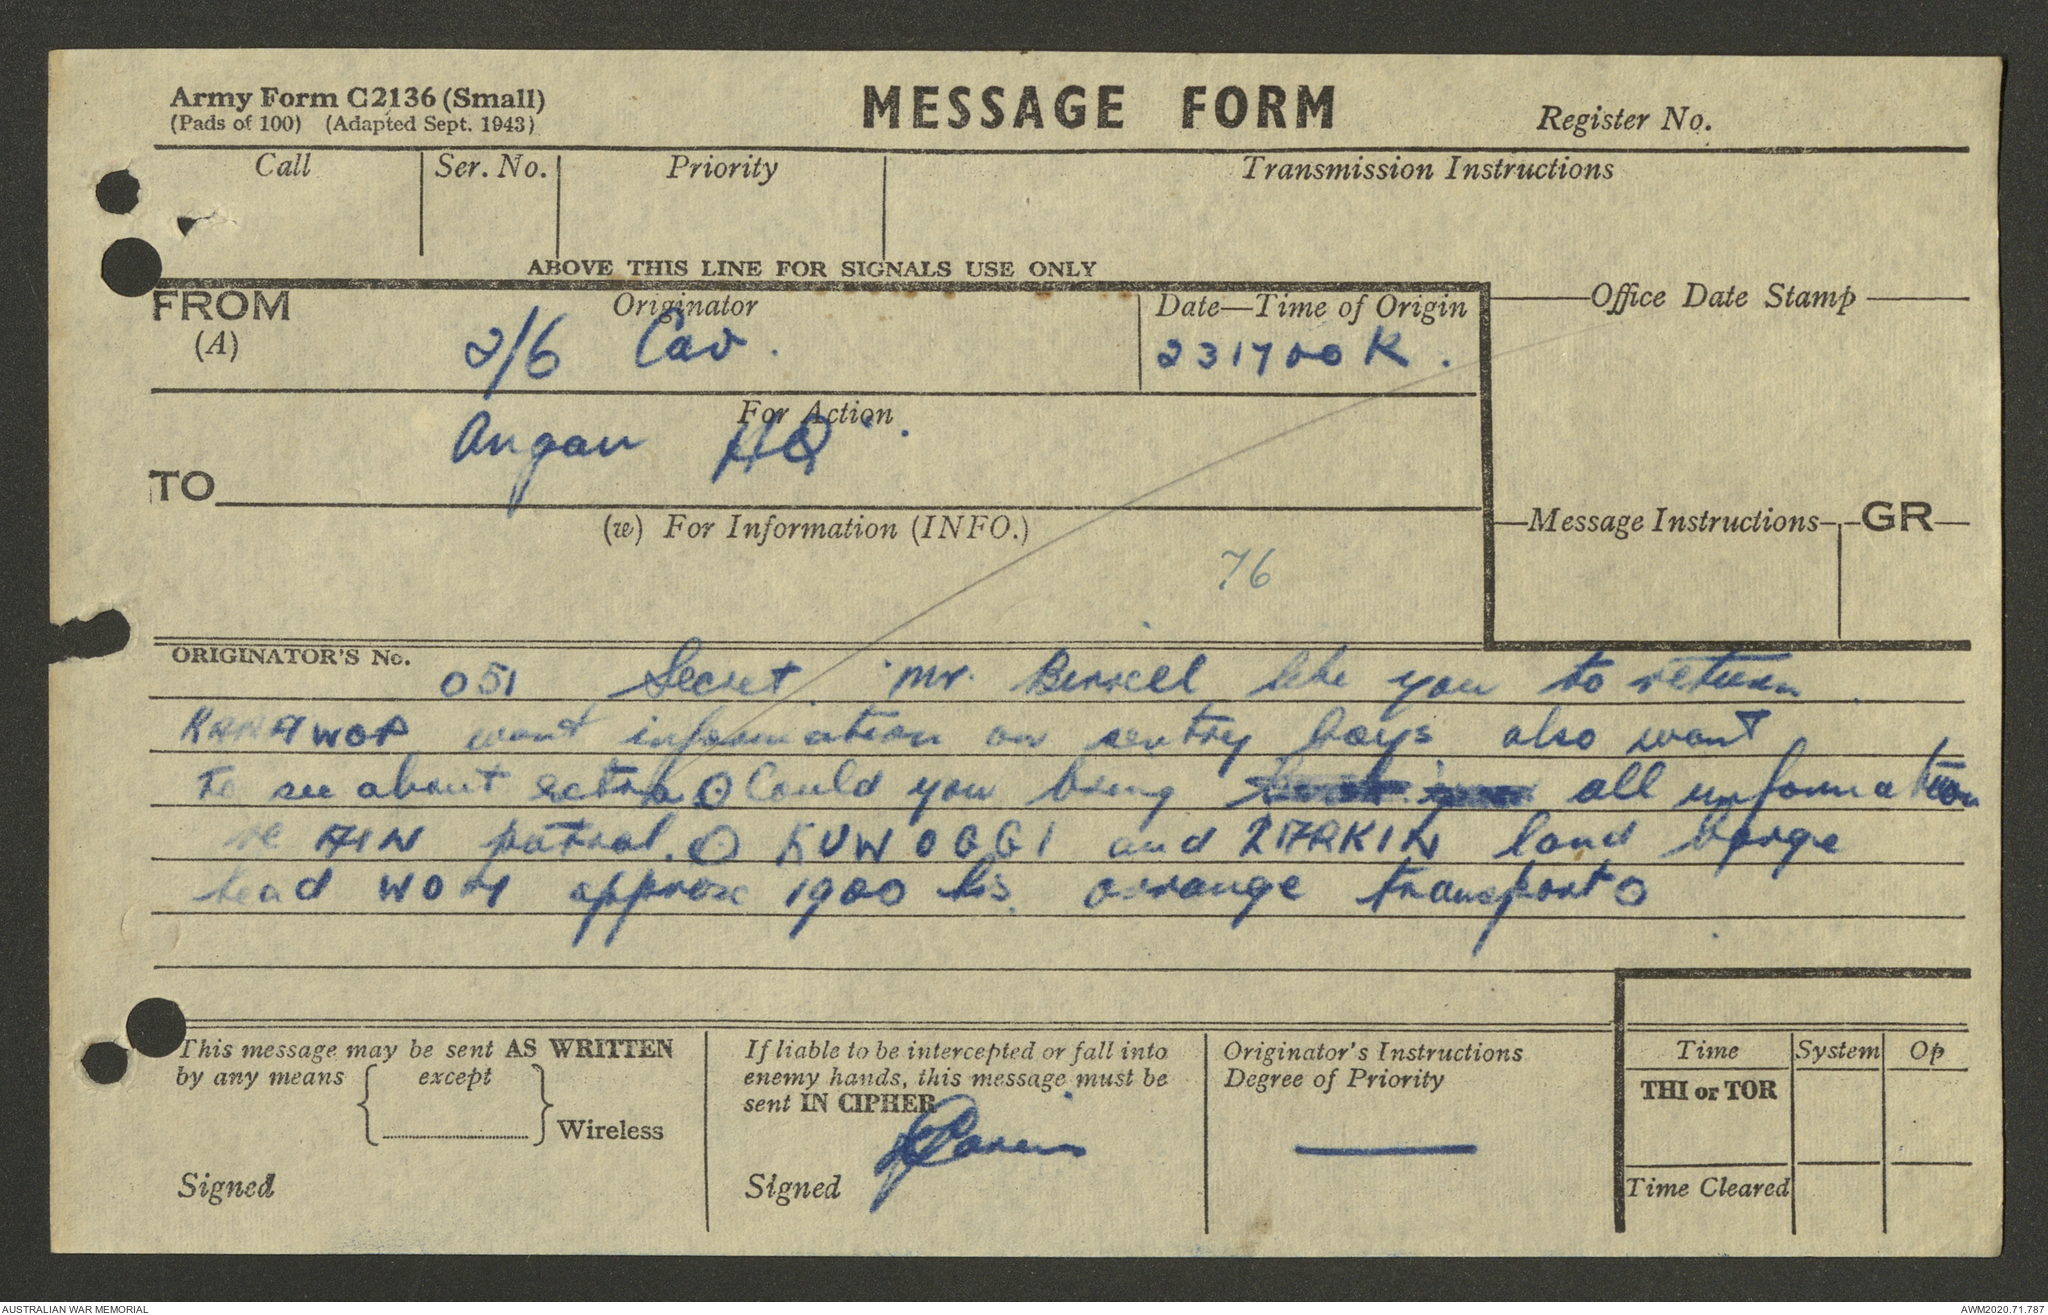 Army Form C2136 (Small)
(Pads of 100) (Adapted Sept. 1943)
MESSAGE FORM
Register No.
Call
Ser. No.
Priority
Transmission Instructions
ABOVE THIS LINE FOR SIGNALS USE ONLY
FROM
(A)
Originator
2/6 Cav.
Date—Time of Origin
231700K.
Office Date Stamp
For Action
Angau HQ.
TO
(w) For Information (INFO.)
76
Message Instructions
GR
ORIGINATOR'S No.
051 Secret Mr. like you to return
want information on sentry boys also want
to see about Could you bring all information
re patrol. and land barge
head WOM approx 1900 hrs. arrange transport
This message may be sent AS WRITTEN
by any means except
Wireless
Signed
If liable to be intercepted or fall into
enemy hands, this message must be
sent IN CIPHER
Signed
Originator's Instructions
Degree of Priority
Time
System
Op
THI or TOR
Time Cleared
AUSTRALIAN WAR MEMORIAL
AWM2020.71.787